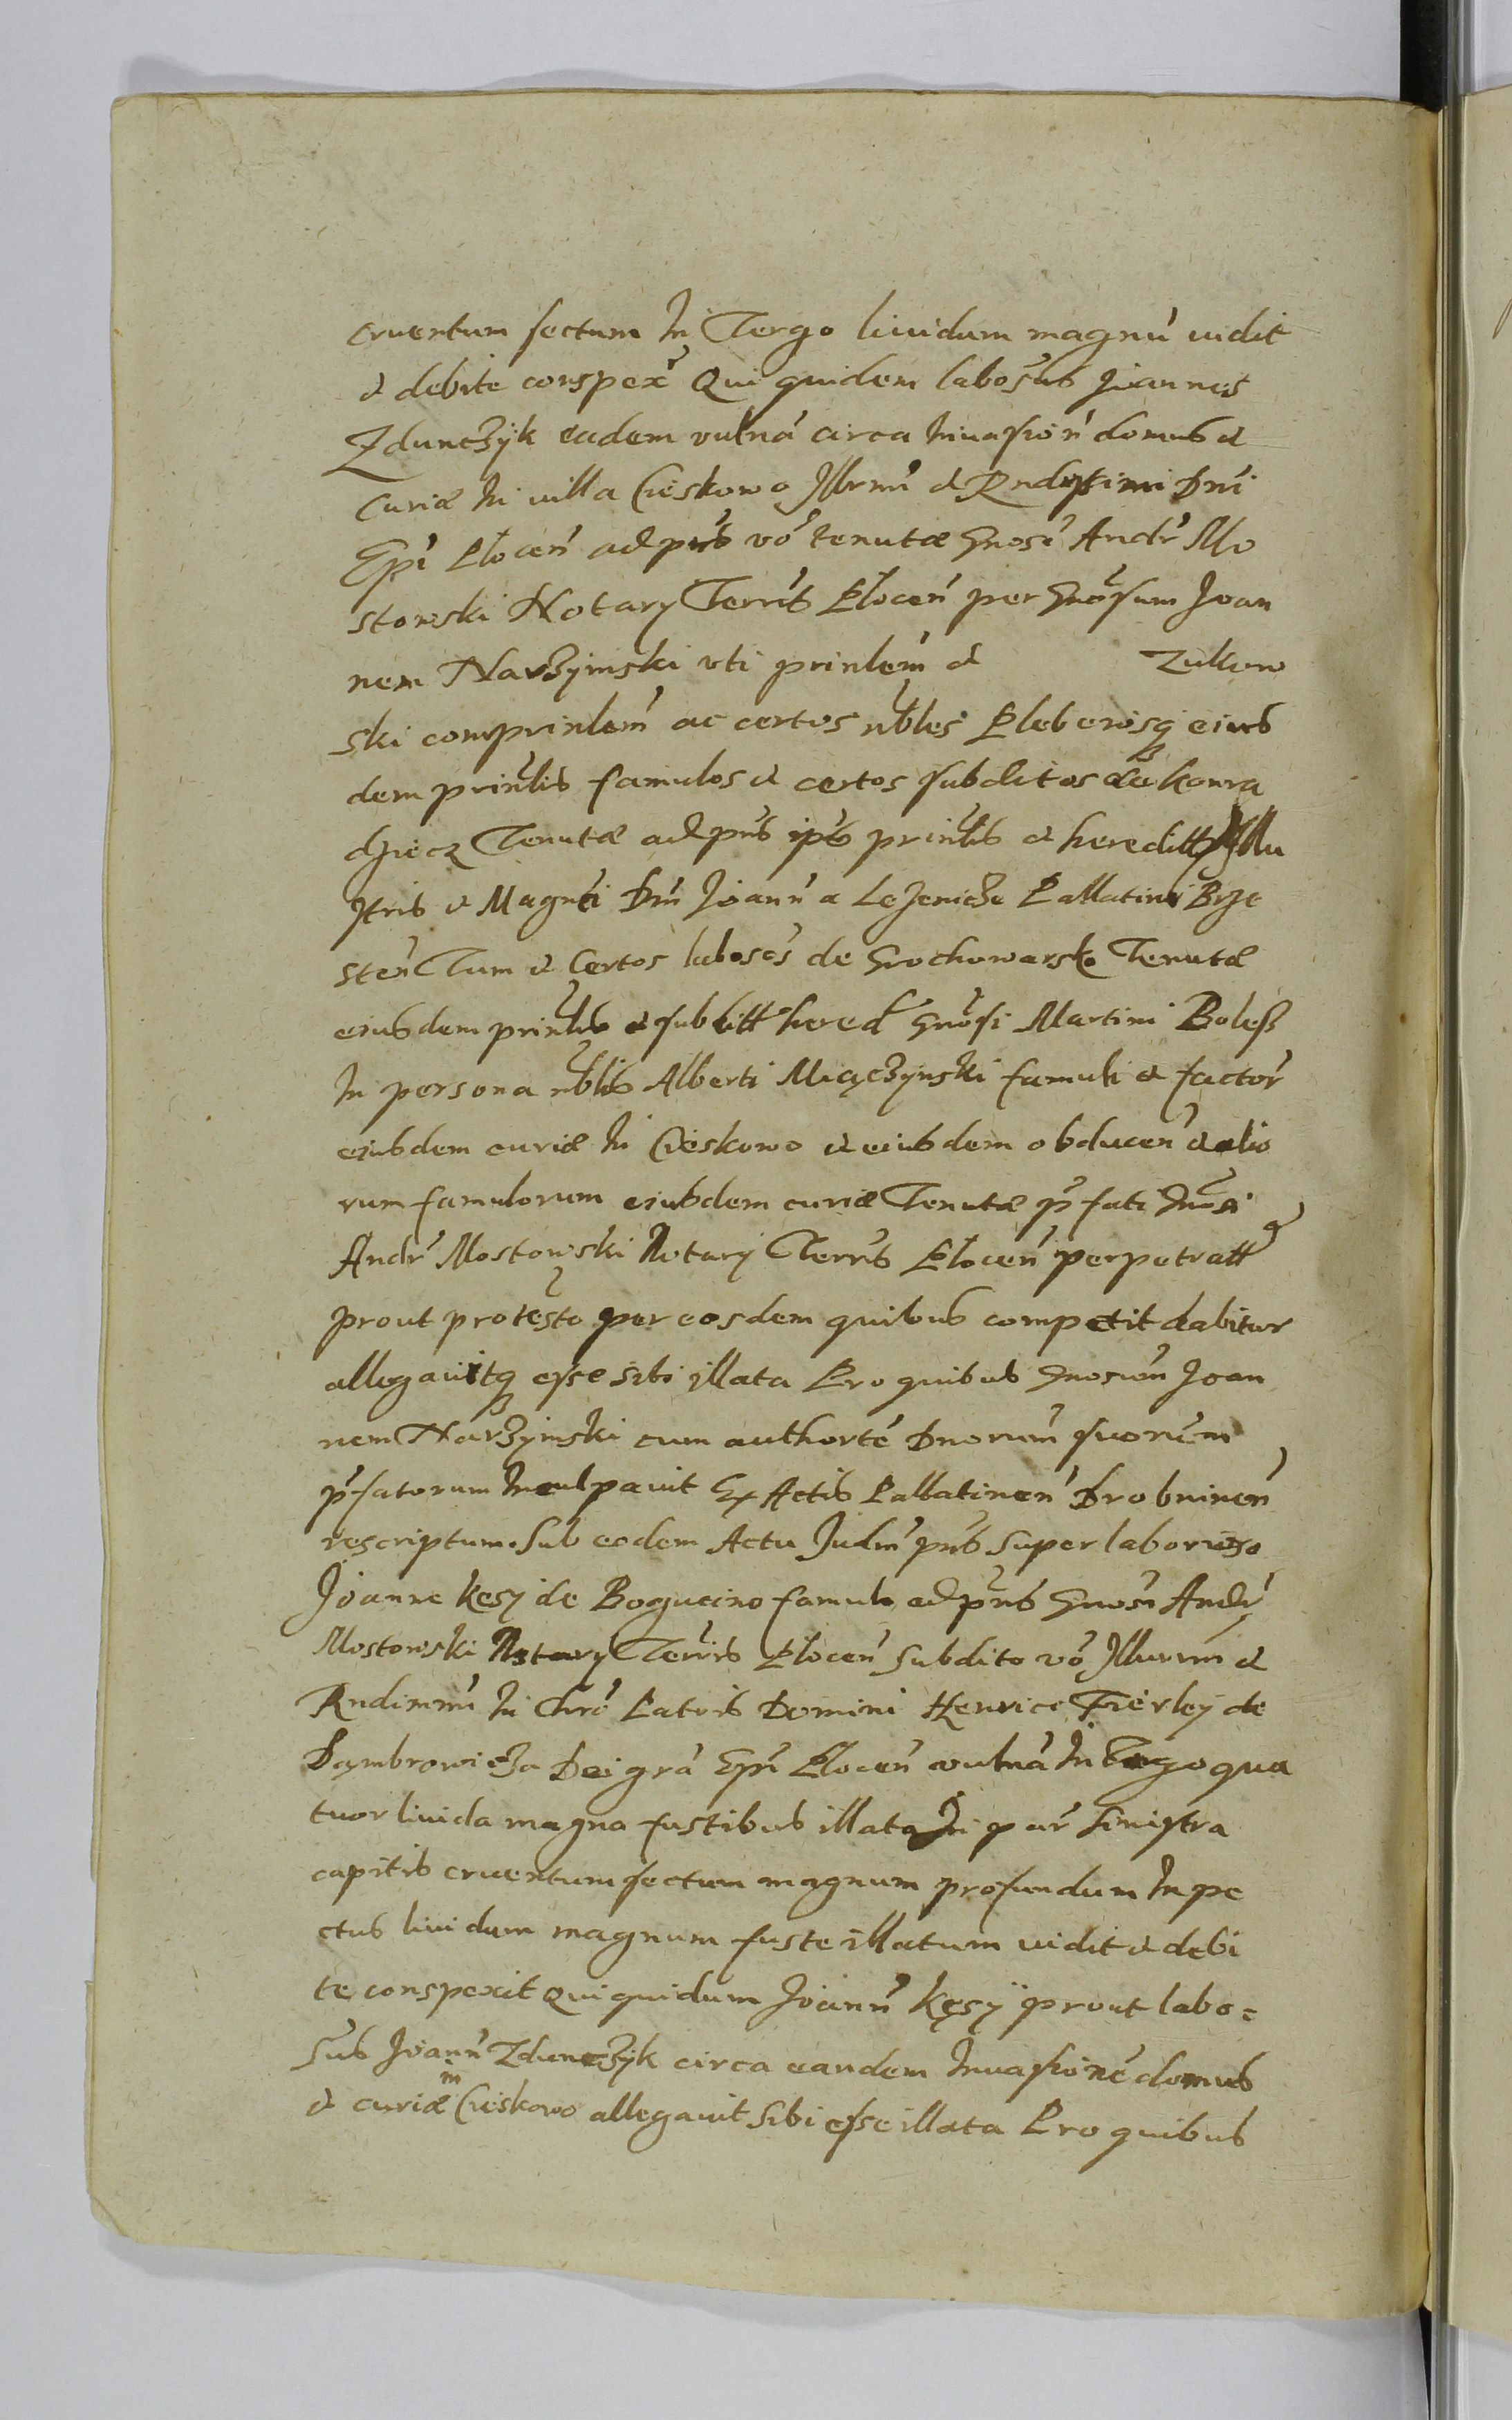 cruentum sectum In Tergo liuidum magnu vidit
et debite conspex Qui quidem labosus Joannes
Zdunczyk eadem vulna circa Inuasion domus et
curiæ In villa Cieskowo Illrmi et Rndissimi Dni
Epi Plocen ad pns vo tenutæ Gnosi Andr Mo
stowski Notary Terris Plocen per Gnosum Joan
nem Narzymski vti prinlem et Zukow
ski comprinlem ac certos nbles Plebeiosq eius
dem prinlis famulos et certos subditos de konra
dziecz Tenutæ ad pns ips prinlis et hereditt Illu
stris et Magnci Dni Joann a Lezenicze Pallatini Brze
sten Tum et Certos labosos de Grochowarsko Tenutæ
eiusdem prinlis et subditt hered Gnosi Martini Boless
In persona nblis Alberti Miączynski famuli et factor
eiusdem curiæ In Cieskowo et eiusdem obducen et alio
rum famulorum eiusdem curiæ Tenutæ p fati Gnosi
Andr Mostowski Notary Terris Plocen perpetratt
prout protesto per eosdem quibus competit dabitur
allegauitq esse sibi illata Pro quibus Gnosum Joan
nem Narzymski cum authorte Dnorum suorum
p fatorum Inculpauit Ex Actis Pallatinen Drobninen
rescriptum. Sub eodem Actu Judm pns super laborioso
Joanne Kesy de Bogucino famulo ad pns Gnosi Andr
Mostowski Notary Terris Plocen subdito vo Illurmi et
Rndimmi In Chro Patris Domini Henrici Fierley de
Dąmbrowicza Dei gra Epi Plocen vulna In Tergo qua
tuor liuida magna fustibus illata In par sinistra
capitis cruentum sectum magnum profundum In pe
ctus liuidum magnum fuste illatum vidit et debi
te conspexit Qui quidum Joann Kęsÿ prout labo=
sus Joann Zdunczyk circa eandem Inuasione domus
et curiæ in Cieskowo allegauit sibi esse illata Pro quibus